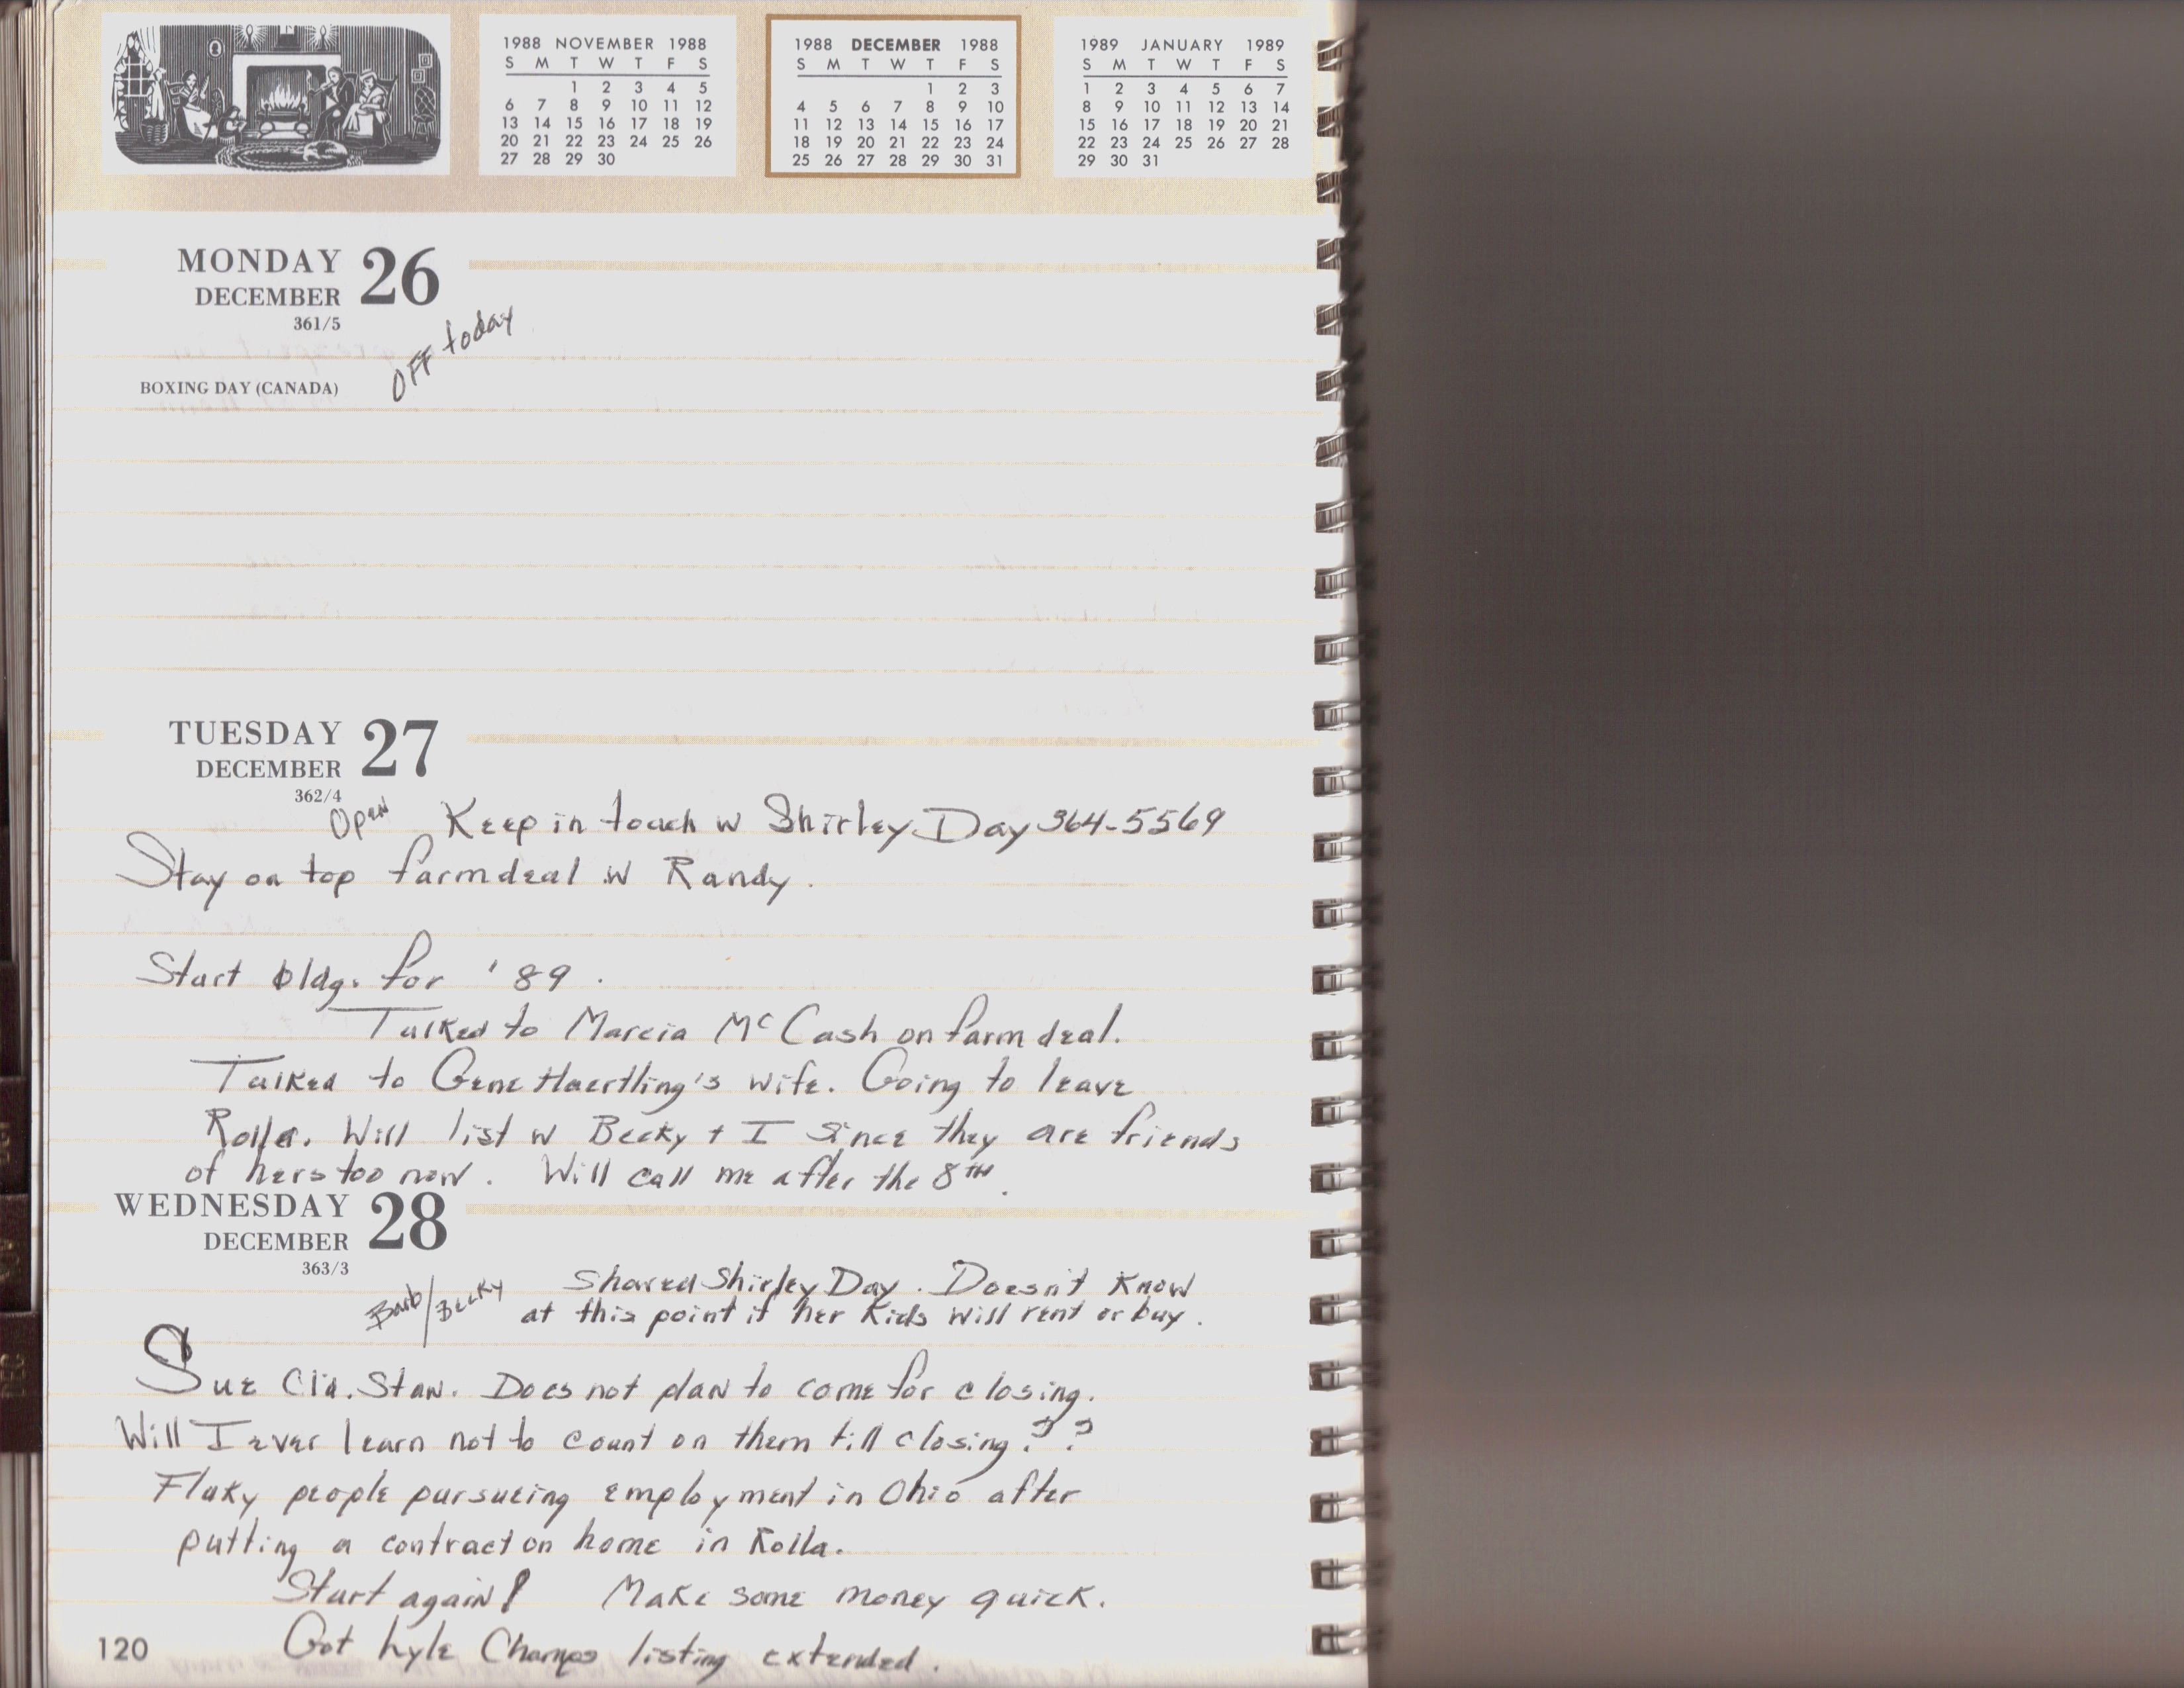 1988 NOVEMBER 1988
S M T W T F S
1 2 3 4 5
6 7 8 9 10 11 12
13 14 15 16 17 18 19
20 21 22 23 24 25 26
27 28 29 30
1988 DECEMBER 1988
S M T W T F S
1 2 3
4 5 6 7 8 9 10
11 12 13 14 15 16 17
18 19 20 21 22 23 24
25 26 27 28 29 30 31
1989 JANUARY 1989
S M T W T F S
1 2 3 4 5 6 7
8 9 10 11 12 13 14
15 16 17 18 19 20 21
22 23 24 25 26 27 28
29 30 31
MONDAY 26
DECEMBER
361/5
OFF today
BOXING DAY (CANADA)
TUESDAY 27
DECEMBER
362/4
Open Keep in touch w Shirley Day 364-5569
Stay on top farm deal w Randy.
Start bldg. for '89.
Talked to Marcia McCash on farm deal.
Talked to Gene Haertling's wife. Going to leave
Rolla. Will list w Becky + I since they are friends
of hers too now. Will call me after the 8TH.
WEDNESDAY 28
DECEMBER
363/3
Barb/Becky Shared Shirley Day. Doesn't know
at this point if her kids will rent or buy.
Sue Cld. Stan. Does not plan to come for closing.
Will I ever learn not to count on them till closing??
Flaky people pursueing employment in Ohio after
putting a contract on home in Rolla.
Start again! Make some money quick.
120 Got Lyle listing extended.
DEC